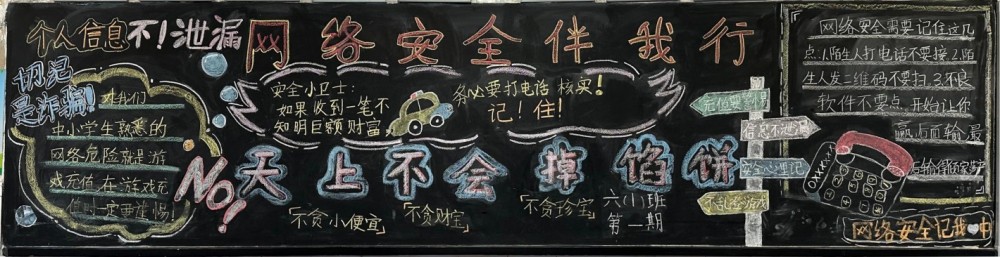 个人信息不!泄漏
网络安全伴我行
切记
是诈骗!
对我们
中小学生熟悉的
网络危险就是游
戏充值在游戏充
值一定要谨慎!
安全小卫士:
如果收到一笔不
知明巨额财富,
务必要打电话 核实!
记!住!
NO!
天上不会掉馅饼
「不贪小便宜」
「不贪财宝」
「不贪珍宝」
六(1)班
第一期
充值要谨慎
信息不泄漏
安全心里记
不乱登游戏
网络安全需要记住这几
点,1.陌生人打电话不要接2.陌
生人发二维码不要扫.3.不良
软件不要点.开始让你
赢,后面输最
网络安全记我♥中